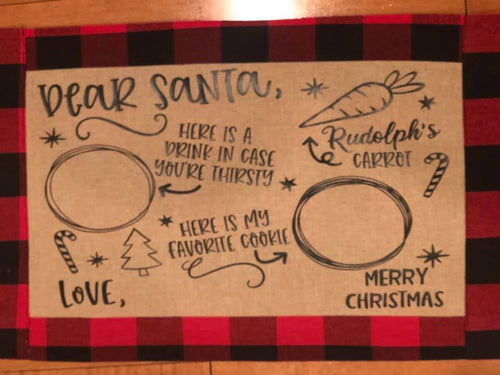 DEAR SANTA,
HERE IS A
DRINK IN CASE
YOU'RE THIRSTY
Rudolph's
CARROT
HERE IS MY
FAVORITE COOKIE
LOVE,
MERRY
CHRISTMAS